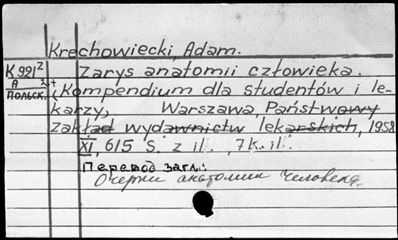 Krechowiecki, Adam.
К921²
А
ПОЛЬСК.
Zarys anatomii człowieka.
(Kompendium dla studentów i le-
karzy, Warszawa Państwowy
zakład wydawnictw lekarskich, 1958
XI, 615 s. z il. , 7 k. il.
Перевод загл.:
Очерки анатомии человека